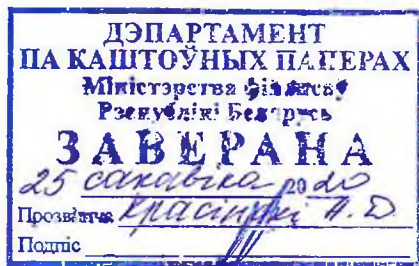 ДЭПАРТАМЕНТ
ПА КАШТОЎНЫХ ПАПЕРАХ
Міністэрства фінансаў
Рэспублікі Беларусь
ЗАВЕРАНА
25 сакавіка 2020
Прозвішча Красінскі А. Д.
Подпіс